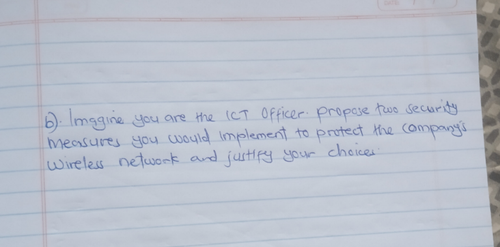 b). Imagine you are the ICT Officer. propose two security
measures you would implement to protect the company's
wireless network and justify your choices.